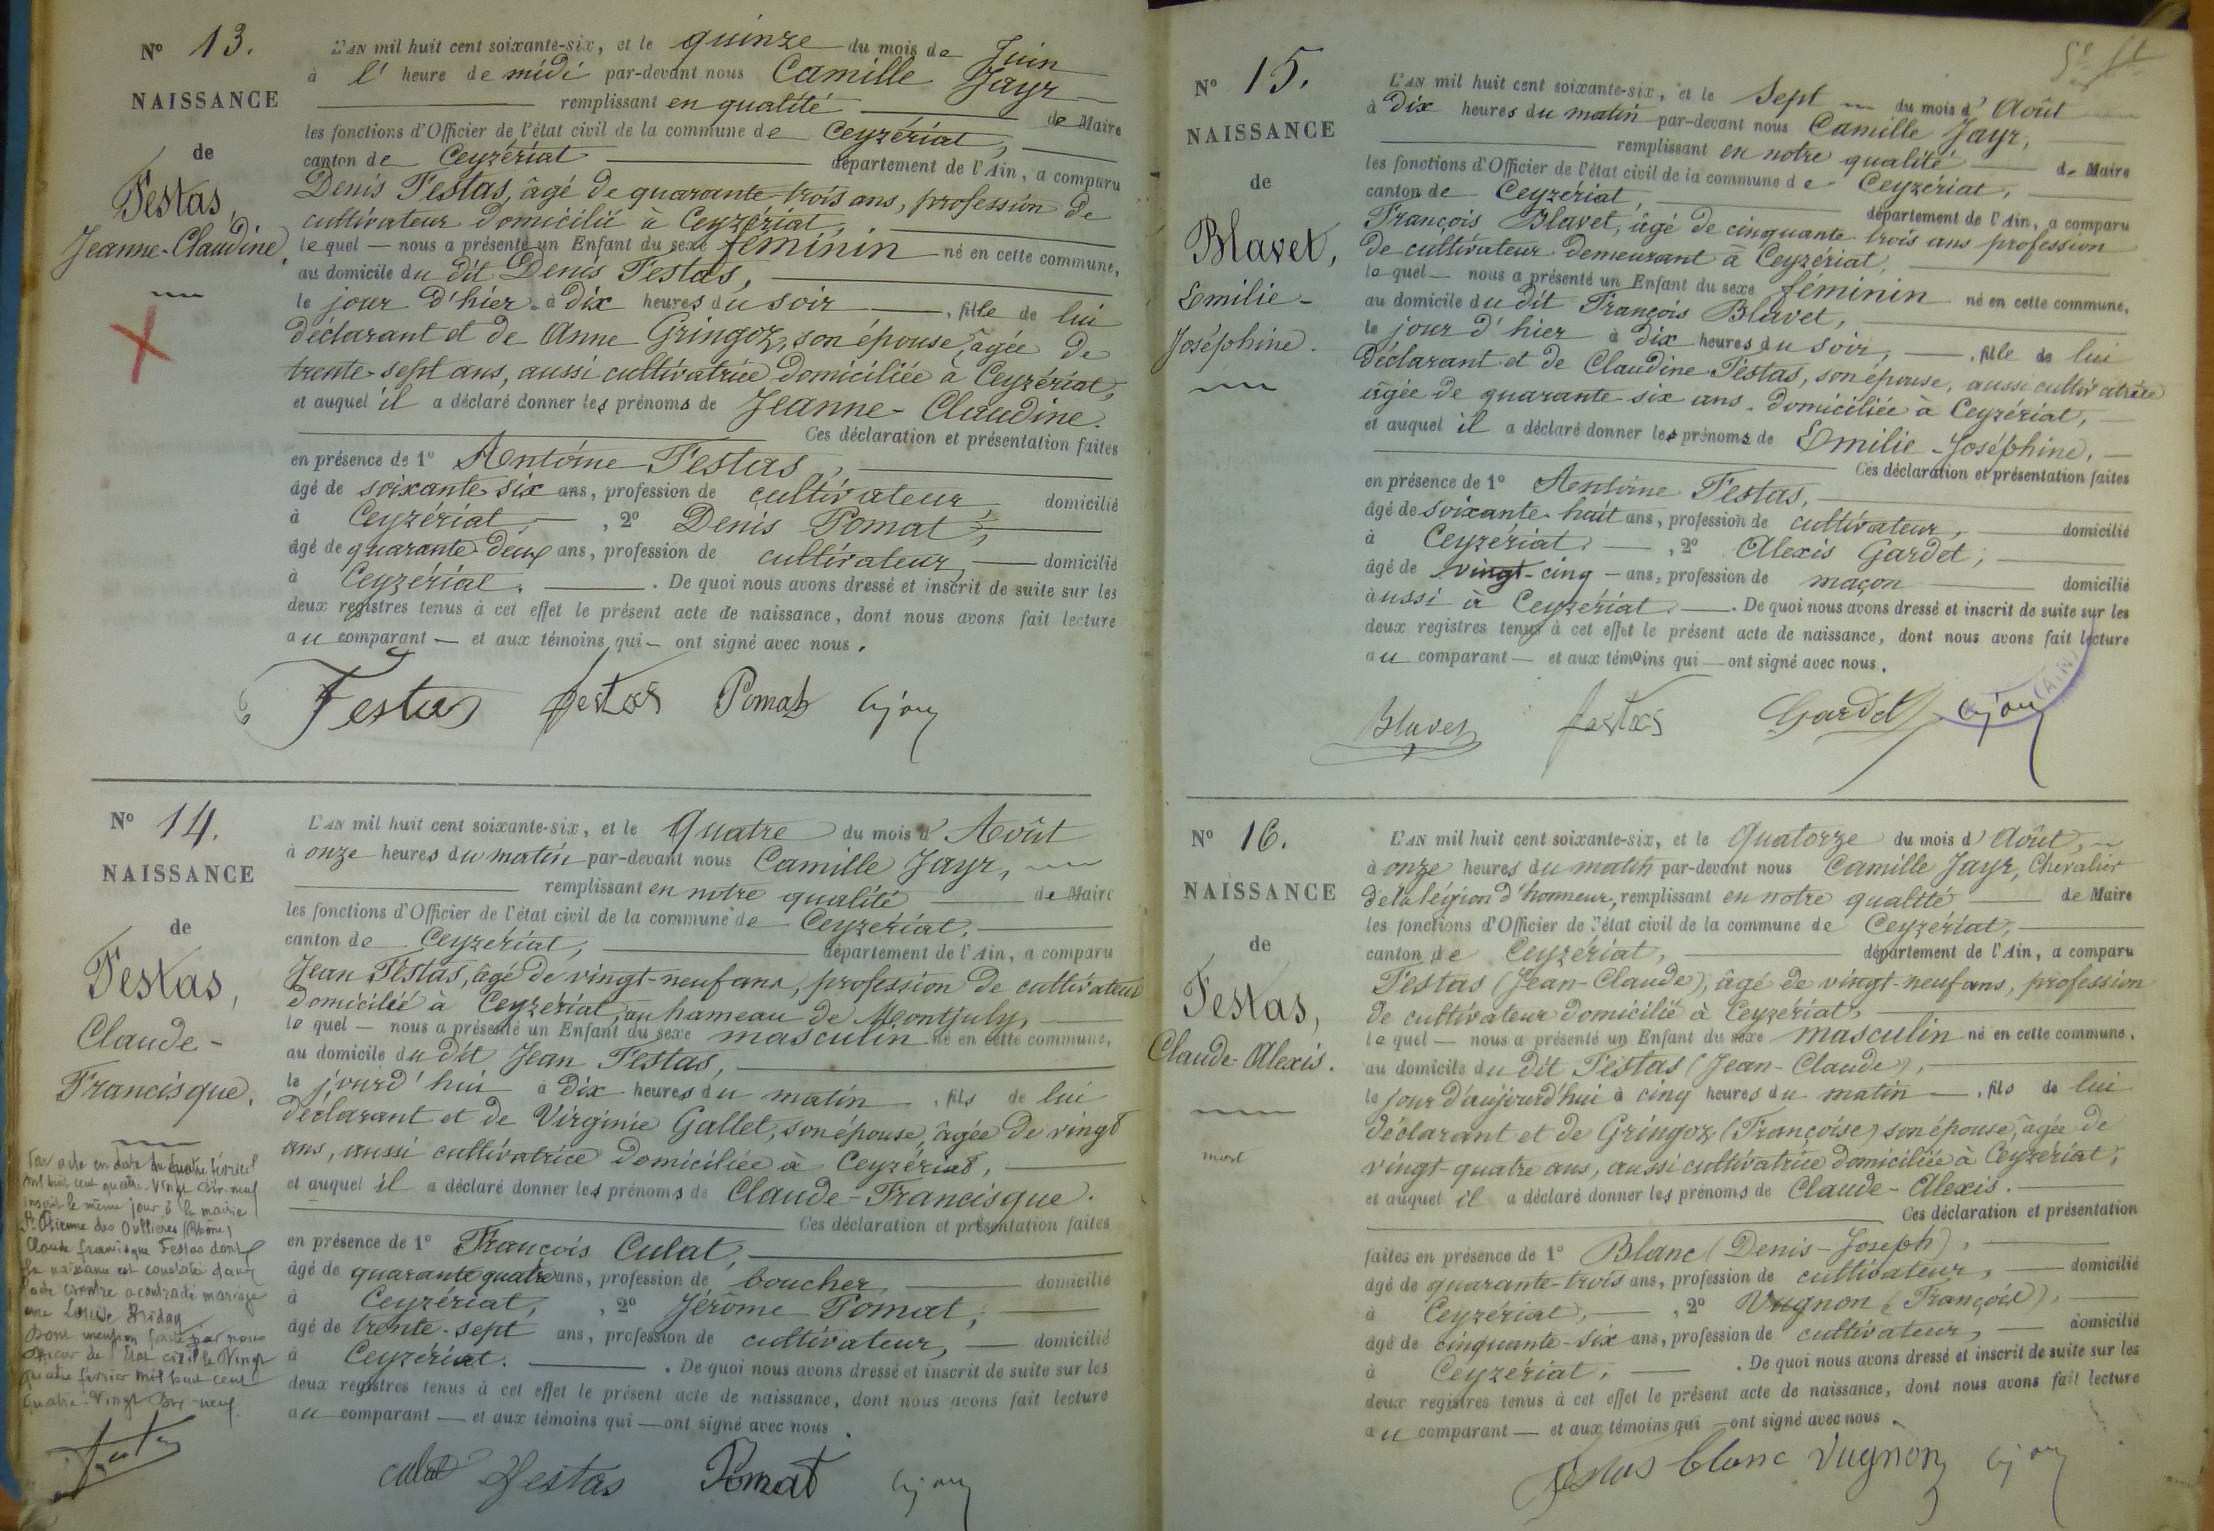 Nº 13.
NAISSANCE
de
Festas,
Jeanne-Claudine,
L'AN mil huit cent soixante-six, et le quinze du mois de Juin
à l' heure de midi par-devant nous Camille Jayr
remplissant en qualité de Maire
les fonctions d'Officier de l'état civil de la commune de Ceyzériat,
canton de Ceyzériat département de l'Ain, a comparu
Denis Festas, âgé de quarante-trois ans, profession de
cultivateur domicilié à Ceyzériat,
lequel — nous a présenté un Enfant du sexe féminin né en cette commune,
au domicile du dit Denis Festas,
le jour d'hier à dix heures du soir, fille de lui
déclarant et de Anne Gringoz, son épouse, âgée de
trente-sept ans, aussi cultivatrice domiciliée à Ceyzériat,
et auquel il a déclaré donner les prénoms de Jeanne-Claudine.
Ces déclaration et présentation faites
en présence de 1º Antoine Festas,
âgé de soixante-six ans, profession de cultivateur, domicilié
à Ceyzériat, 2º Denis Pomat,
âgé de quarante-deux ans, profession de cultivateur, domicilié
à Ceyzériat. De quoi nous avons dressé et inscrit de suite sur les
deux registres tenus à cet effet le présent acte de naissance, dont nous avons fait lecture
au comparant — et aux témoins qui — ont signé avec nous.
Festas festas Pomat
Nº 14.
NAISSANCE
de
Festas,
Claude-
Francisque.
L'AN mil huit cent soixante-six, et le Quatre du mois d'Août
à onze heures du matin par-devant nous Camille Jayr,
remplissant en notre qualité de Maire
les fonctions d'Officier de l'état civil de la commune de Ceyzériat,
canton de Ceyzériat, département de l'Ain, a comparu
Jean Festas, âgé de vingt-neuf ans, profession de cultivateur
domicilié à Ceyzériat, au hameau de Montjuly,
lequel — nous a présenté un Enfant du sexe masculin né en cette commune,
au domicile du dit Jean Festas,
le jourd'hui à dix heures du matin, fils de lui
déclarant et de Virginie Gallet, son épouse, âgée de vingt
ans, aussi cultivatrice domiciliée à Ceyzériat,
et auquel il a déclaré donner les prénoms de Claude-Francisque.
Ces déclaration et présentation faites
en présence de 1º François Culat,
âgé de quarante quatre ans, profession de boucher domicilié
à Ceyzériat, 2º Jérôme Pomat,
âgé de trente-sept ans, profession de cultivateur, domicilié
à Ceyzériat. De quoi nous avons dressé et inscrit de suite sur les
deux registres tenus à cet effet le présent acte de naissance, dont nous avons fait lecture
au comparant — et aux témoins qui — ont signé avec nous.
Par acte en date du quatre février
mil huit cent quatre-vingt dix-neuf
inscrit le même jour à la mairie
St Etienne des Oullières (Rhône)
Claude francisque Festas dont
la naissance est constatée dans
l'acte contre a contracté mariage
avec Louise Briday
Dont mention faite par nous
officier de l'état civil le Vingt
quatre février mil huit cent
quatre-Vingt Dix-neuf.
culat Festas Pomat
Nº 15.
NAISSANCE
de
Blavet,
Emilie-
Joséphine.
L'AN mil huit cent soixante-six, et le Sept du mois d'Août
à dix heures du matin par-devant nous Camille Jayr,
remplissant en notre qualité de Maire
les fonctions d'Officier de l'état civil de la commune de Ceyzériat,
canton de Ceyzériat, département de l'Ain, a comparu
François Blavet, âgé de cinquante trois ans profession
de cultivateur demeurant à Ceyzériat,
lequel — nous a présenté un Enfant du sexe féminin né en cette commune,
au domicile du dit François Blavet,
le jour d'hier à dix heures du soir, fille de lui
déclarant et de Claudine Festas, son épouse, aussi cultivatrice
âgée de quarante-six ans domiciliée à Ceyzériat,
et auquel il a déclaré donner les prénoms de Emilie-Joséphine.
Ces déclaration et présentation faites
en présence de 1º Antoine Festas,
âgé de soixante-huit ans, profession de cultivateur, domicilié
à Ceyzériat, 2º Alexis Gardet,
âgé de vingt-cinq ans, profession de maçon domicilié
aussi à Ceyzériat. De quoi nous avons dressé et inscrit de suite sur les
deux registres tenus à cet effet le présent acte de naissance, dont nous avons fait lecture
au comparant — et aux témoins qui — ont signé avec nous.
Blavet festas Gardet
Nº 16.
NAISSANCE
de
Festas,
Claude-Alexis.
mort
L'AN mil huit cent soixante-six, et le Quatorze du mois d'Août,
à onze heures du matin par-devant nous Camille Jayr, Chevalier
de la légion d'honneur, remplissant en notre qualité de Maire
les fonctions d'Officier de l'état civil de la commune de Ceyzériat,
canton de Ceyzériat, département de l'Ain, a comparu
Festas (Jean-Claude), âgé de vingt-neuf ans, profession
de cultivateur domicilié à Ceyzériat,
lequel — nous a présenté un Enfant du sexe masculin né en cette commune,
au domicile du dit Festas (Jean-Claude),
le jour d'aujourd'hui à cinq heures du matin, fils de lui
déclarant et de Gringoz (Françoise) son épouse, âgée de
vingt-quatre ans, aussi cultivatrice domiciliée à Ceyzériat,
et auquel il a déclaré donner les prénoms de Claude-Alexis.
Ces déclaration et présentation
faites en présence de 1º Blanc (Denis-Joseph),
âgé de quarante-trois ans, profession de cultivateur, domicilié
à Ceyzériat, 2º Vugnon (François),
âgé de cinquante-six ans, profession de cultivateur, domicilié
à Ceyzériat. De quoi nous avons dressé et inscrit de suite sur les
deux registres tenus à cet effet le présent acte de naissance, dont nous avons fait lecture
au comparant — et aux témoins qui — ont signé avec nous.
festas blanc Vugnon